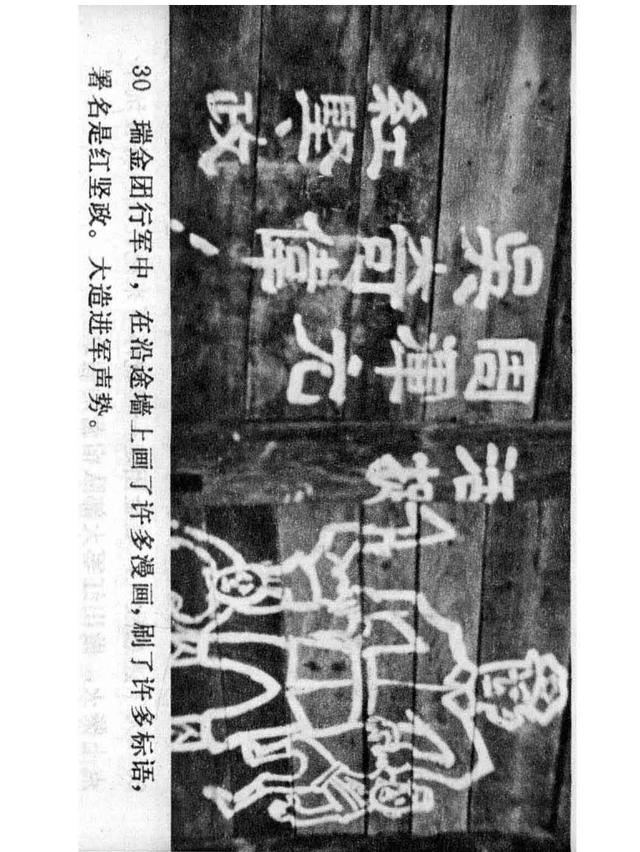 活捉
周渾元
吳奇偉
紅堅政
30 瑞金团行军中，在沿途墙上画了许多漫画，刷了许多标语，
署名是红坚政。大造进军声势。